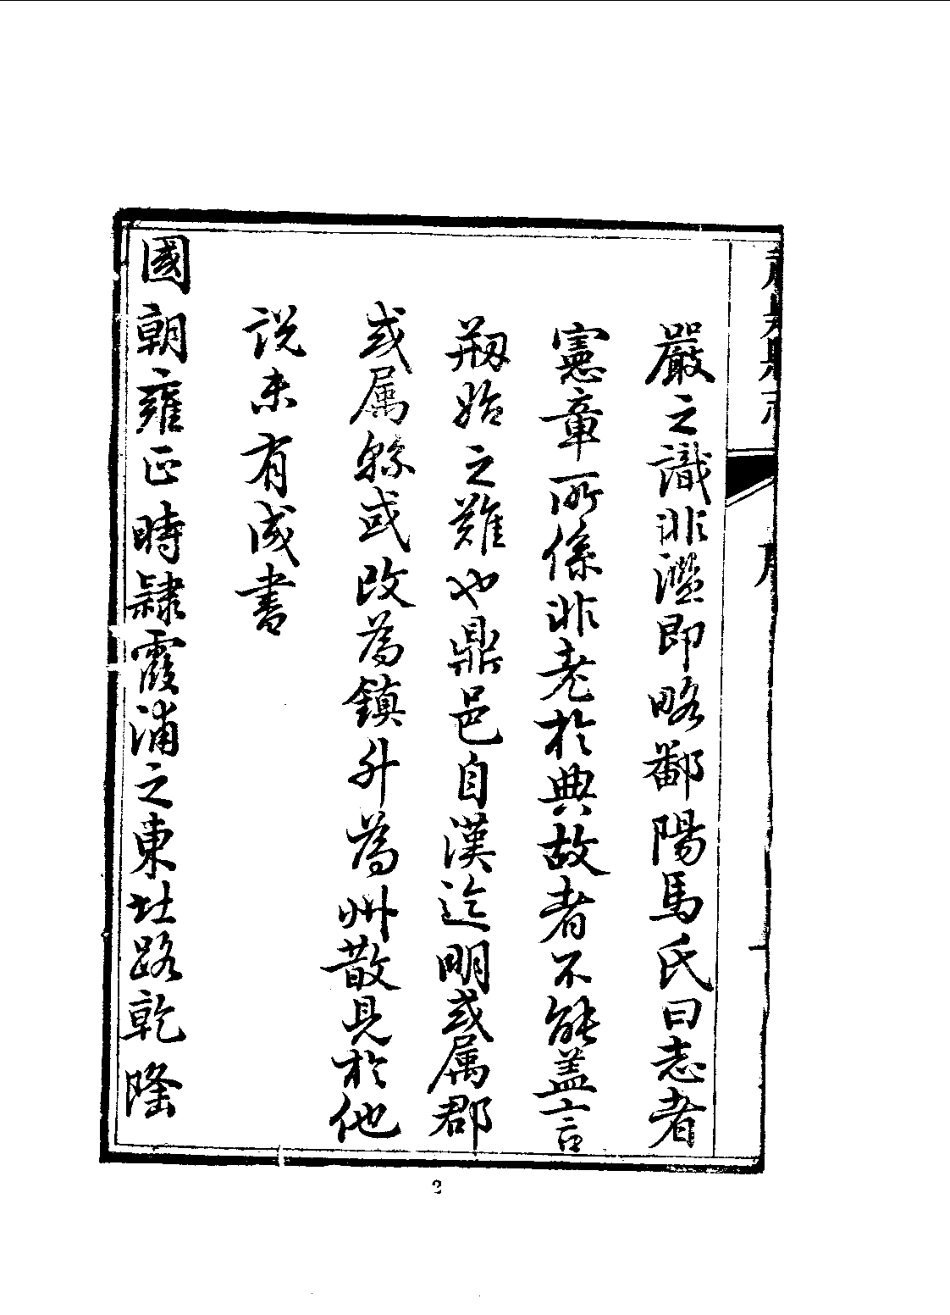 嚴之識非濫即略鄱陽馬氏曰志者
憲章所係非老於典故者不能蓋言
剏始之難也鼎邑自漢迄明或属郡
或属縣或改為鎮升為州散見於他
説未有成書
國朝雍正時隸霞浦之東北路乾隆
2